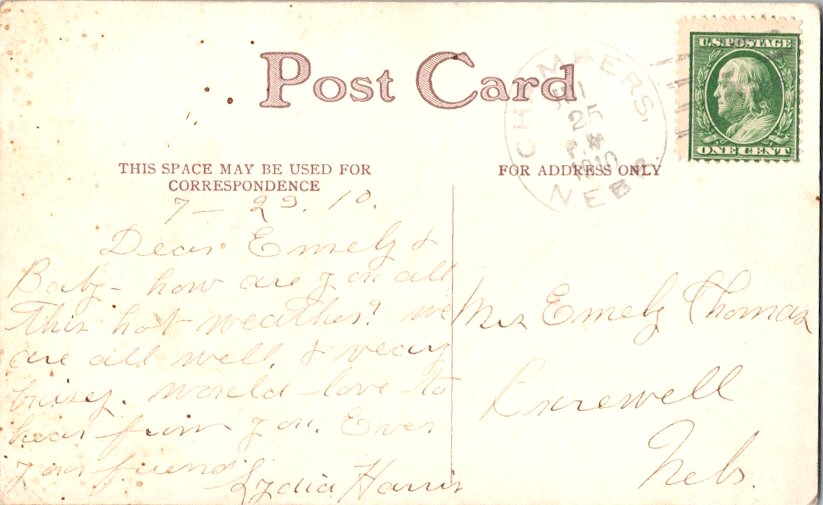 Post Card
CHAMBERS,
25
P M
1910
NEBR.
U.S. POSTAGE
ONE CENT
THIS SPACE MAY BE USED FOR
CORRESPONDENCE
FOR ADDRESS ONLY
7 - 23. 10.
Dear Emely &
Baby - how are you all
this hot weather? we
are all well, & veary
buisy. would love to
hear from you. Ever
your friend
Lydia Harris
Mrs Emely Thomas
Nebs.